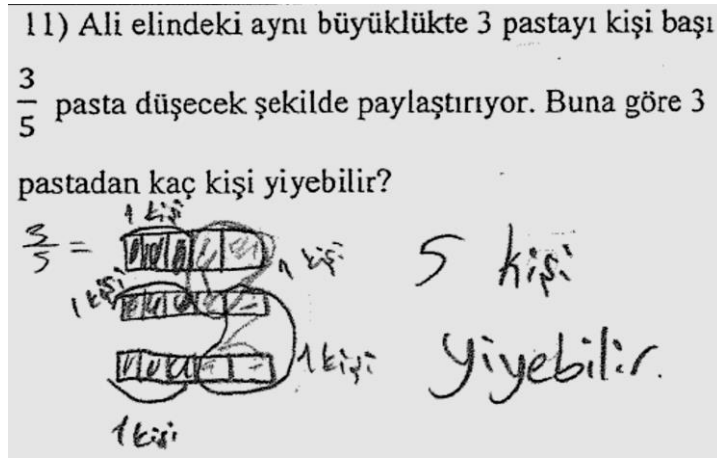 11) Ali elindeki aynı büyüklükte 3 pastayı kişi başı
3/5 pasta düşecek şekilde paylaştırıyor. Buna göre 3
pastadan kaç kişi yiyebilir?
1 kişi
3/5 =
1 kişi
1 kişi
1 kişi
1 kişi
5 kişi
Yiyebilir.